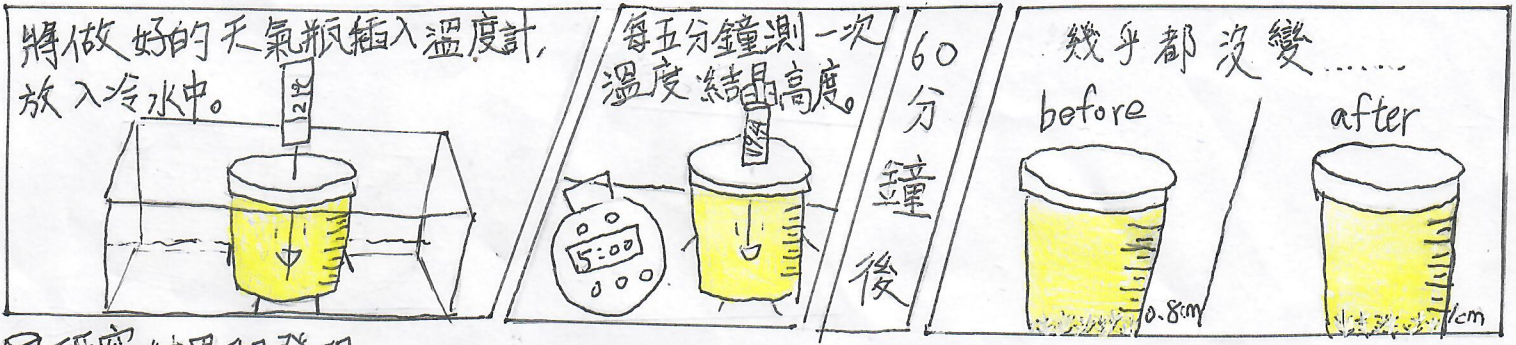 將做好的天氣瓶插入溫度計,
放入冷水中。
每五分鐘測一次
溫度結晶高度。
5:00
60
分
鐘
後
幾乎都沒變……
before
after
0.8cm
1cm